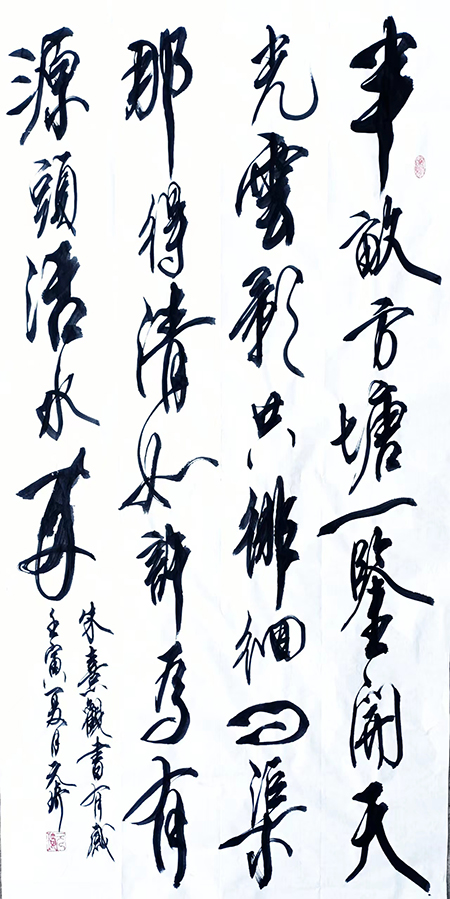 半畝方塘一鑒開天
光雲影共徘徊問渠
那得清如許為有
源頭活水來
朱熹觀書有感
壬寅夏月